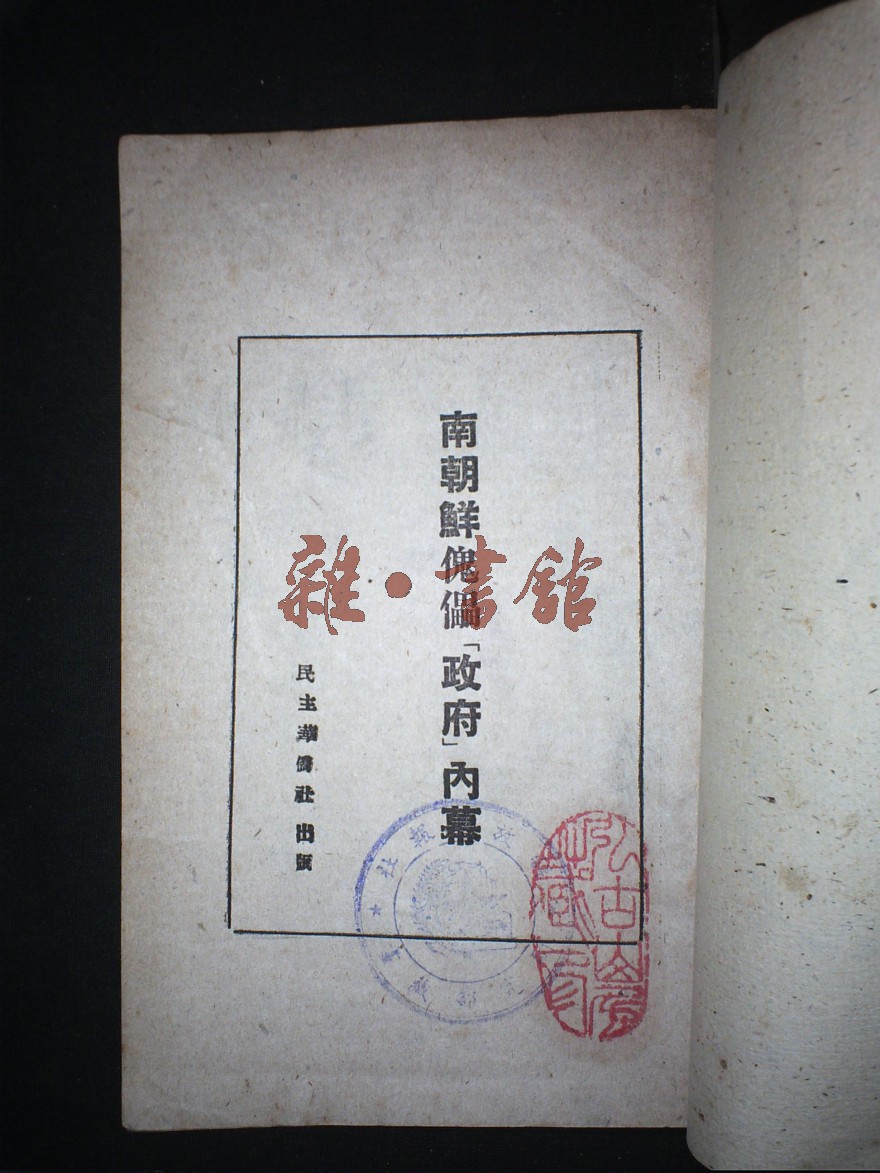 南朝鮮傀儡「政府」內幕
民主華僑社 出版
雜·書館